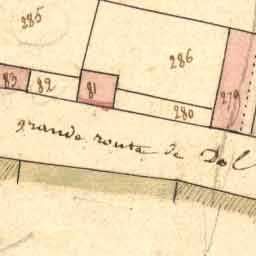 285
286
83
82
81
280
279
grande route de Dol